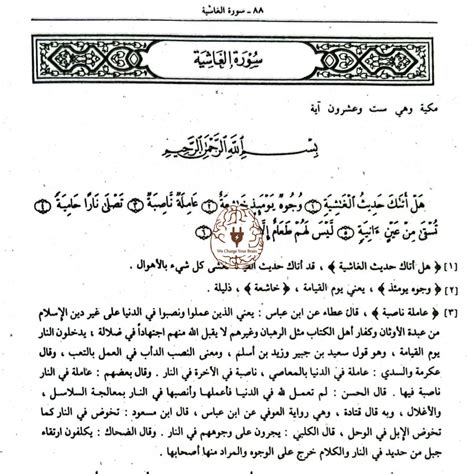 ٨٨ - سورة الغاشية
سُورَةُ الغَاشِيَة
مكية وهي ست وعشرون آية
بِسْمِ اللَّهِ الرَّحْمَٰنِ الرَّحِيمِ
هَلْ أَتَىٰكَ حَدِيثُ الْغَٰشِيَةِ ﴿١﴾ وُجُوهٌ يَوْمَئِذٍ خَٰشِعَةٌ ﴿٢﴾ عَامِلَةٌ نَّاصِبَةٌ ﴿٣﴾ تَصْلَىٰ نَارًا حَامِيَةً ﴿٤﴾
تُسْقَىٰ مِنْ عَيْنٍ ءَانِيَةٍ ﴿٥﴾ لَّيْسَ لَهُمْ طَعَامٌ
We Change Your Brain
[١] ﴿ هل أتاك حديث الغاشية ﴾ ، قد أتاك حديث تغشى كل شيء بالأهوال .
[٢] ﴿ وجوه يومئذ ﴾ ، يعني يوم القيامة ، ﴿ خاشعة ﴾ ، ذليلة .
[٣] ﴿ عاملة ناصبة ﴾ ، قال عطاء عن ابن عباس : يعني الذين عملوا ونصبوا في الدنيا على غير دين الإسلام
من عبدة الأوثان وكفار أهل الكتاب مثل الرهبان وغيرهم لا يقبل الله منهم اجتهاداً في ضلالة ، يدخلون النار
يوم القيامة ، وهو قول سعيد بن جبير وزيد بن أسلم ، ومعنى النصب الدأب في العمل بالتعب ، وقال
عكرمة والسدي : عاملة في الدنيا بالمعاصي ، ناصبة في الآخرة في النار . وقال بعضهم : عاملة في النار
ناصبة فيها . قال الحسن : لم تعمل لله في الدنيا فأعملها وأنصبها في النار بمعالجة السلاسل ،
والأغلال ، وبه قال قتادة ، وهي رواية العوفي عن ابن عباس ، قال ابن مسعود : تخوض في النار كما
تخوض الإبل في الوحل ، قال الكلبي : يجرون على وجوههم في النار . وقال الضحاك : يكلفون ارتقاء
جبل من حديد في النار والكلام خرج على الوجوه والمراد منها أصحابها .